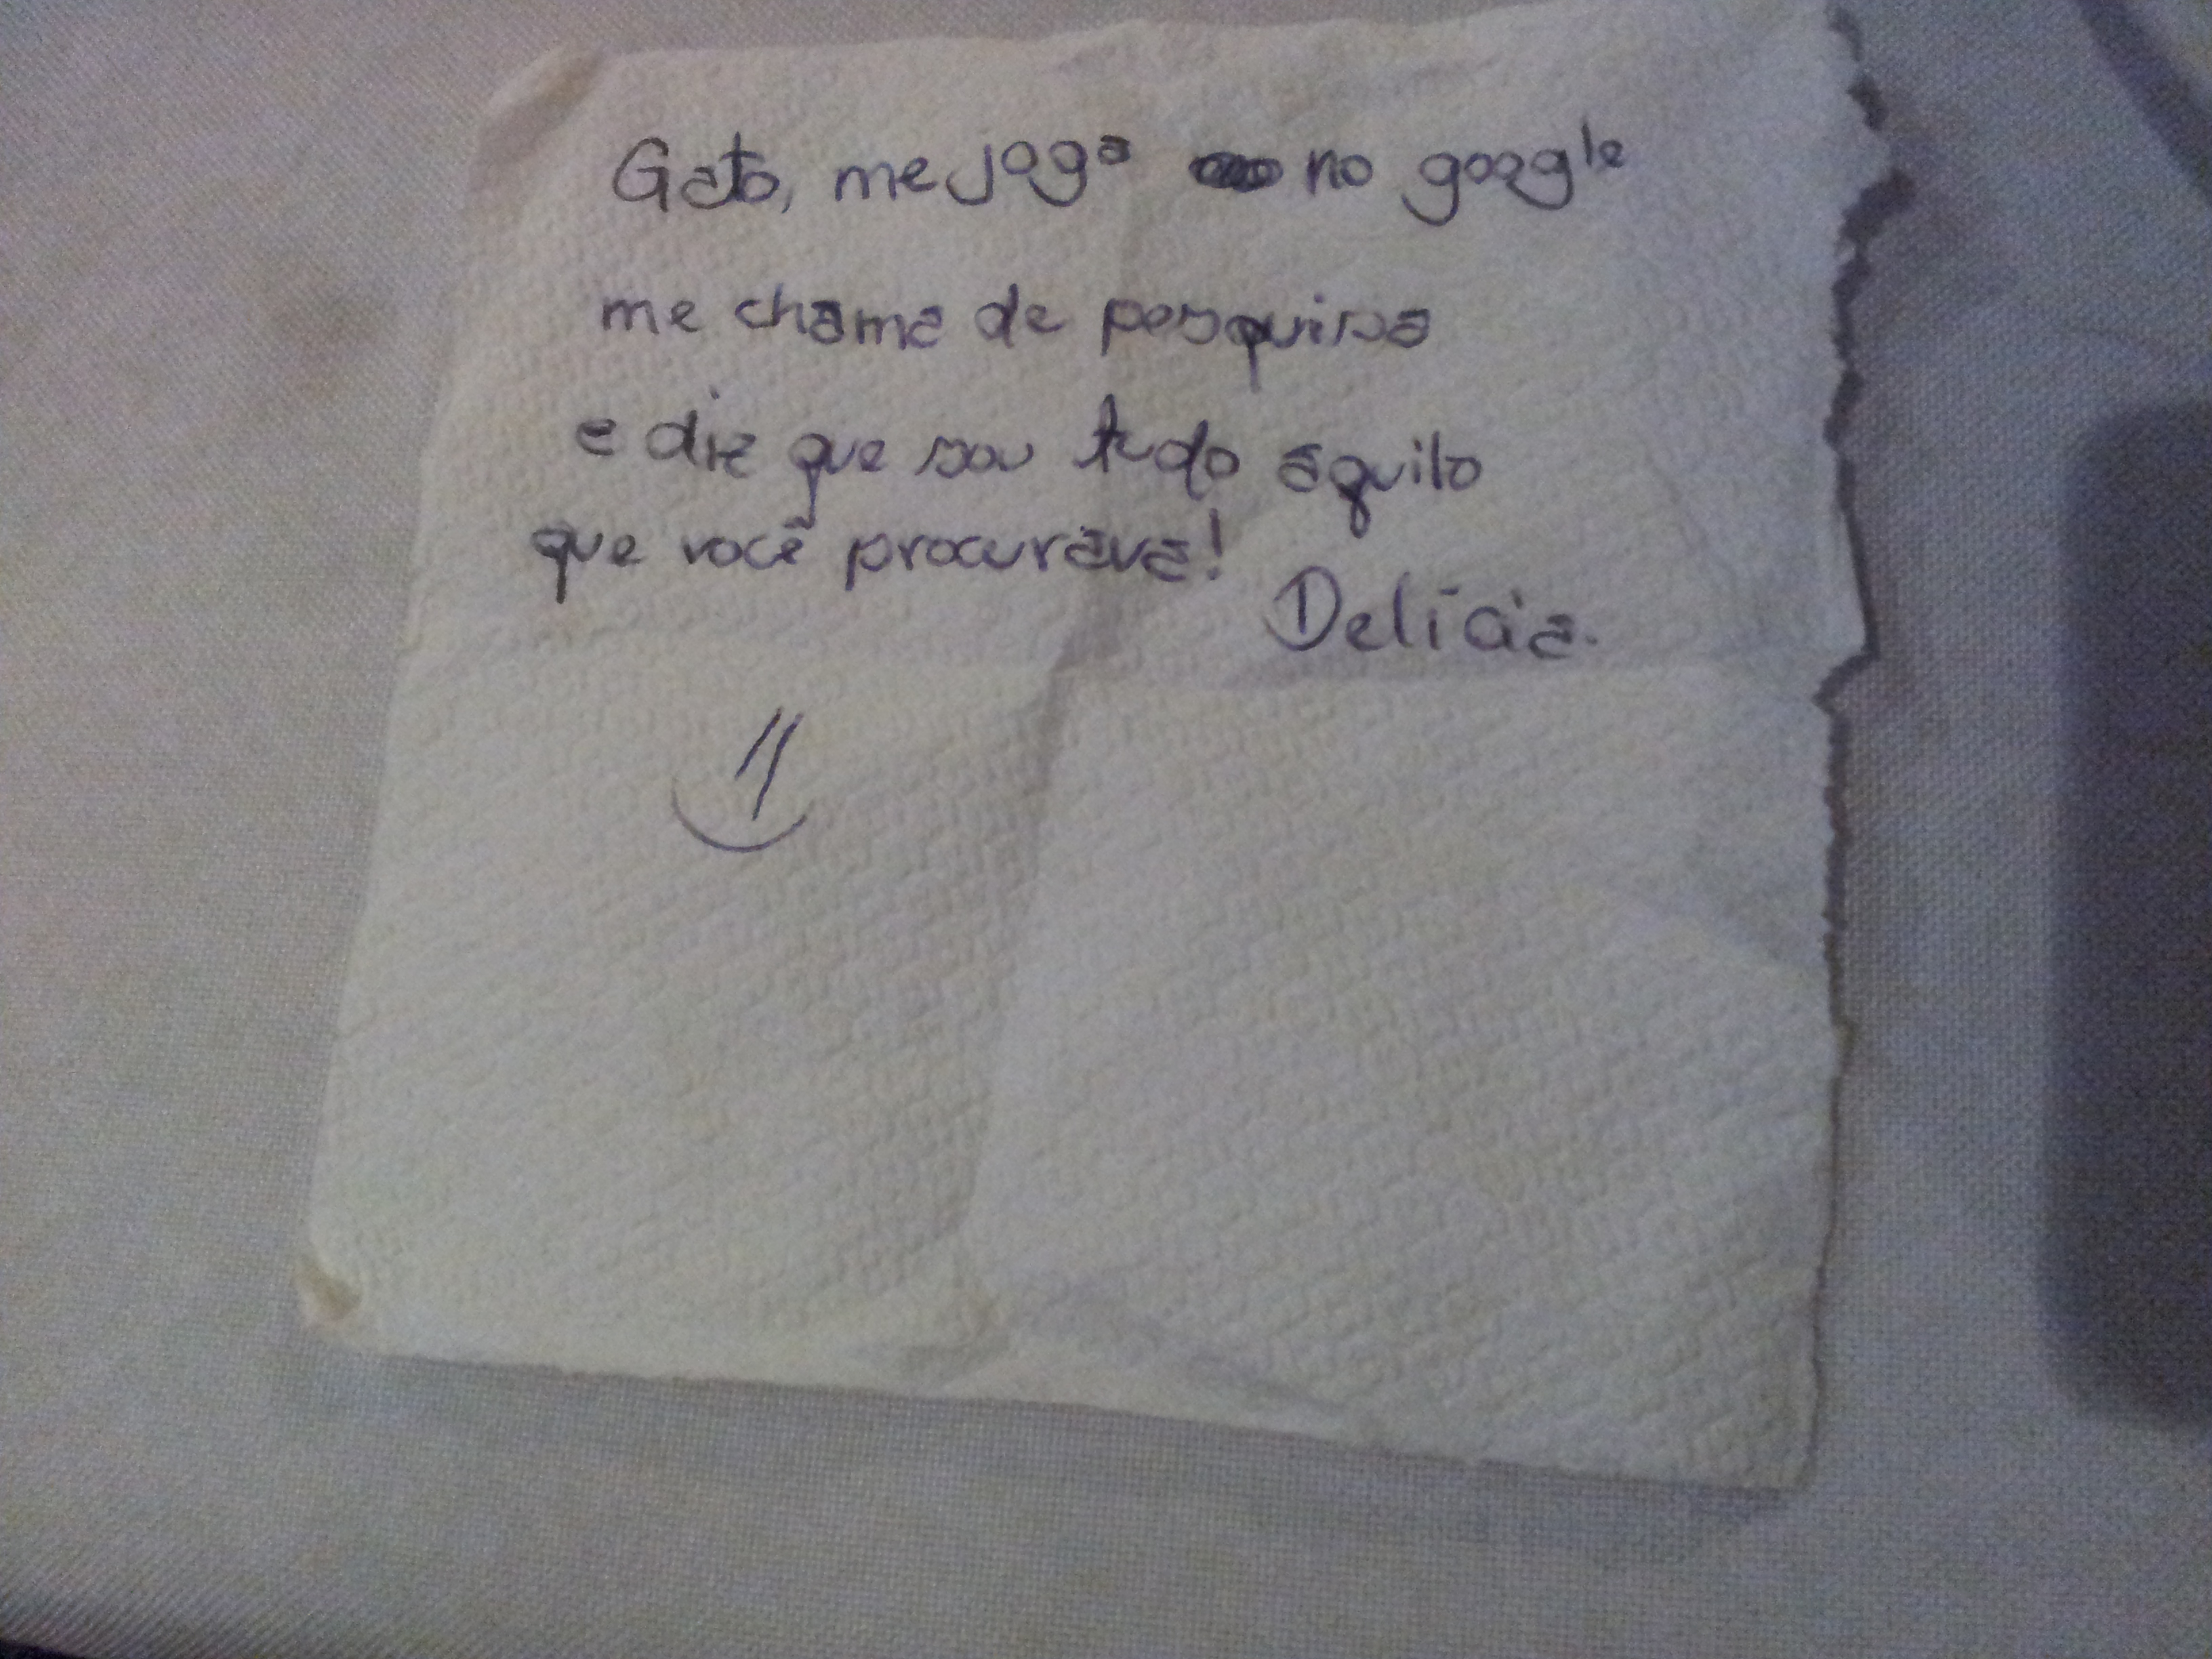 Gato, me joga no google
me chama de pesquisa
e diz que sou tudo aquilo
que você procurava!
Delícia.